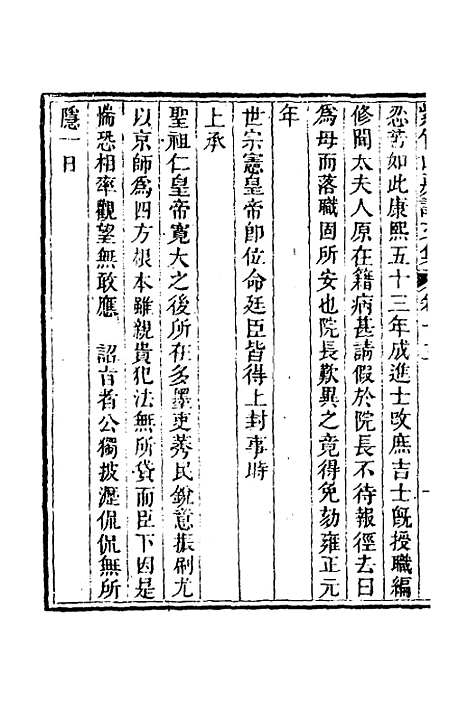 忍苦如此康熙五十三年成進士改庶吉士旣授職編
修聞太夫人原在籍病甚請假於院長不待報徑去曰
爲母而落職固所安也院長歎異之竟得免劾雍正元
年
世宗憲皇帝卽位命廷臣皆得上封事時
上承
聖祖仁皇帝寬大之後所在多墨吏莠民銳意振刷尤
以京師爲四方根本雖親貴犯法無所貸而臣下因是
惴恐相率觀望無敢應　詔言者公獨披瀝侃侃無所
隱一日